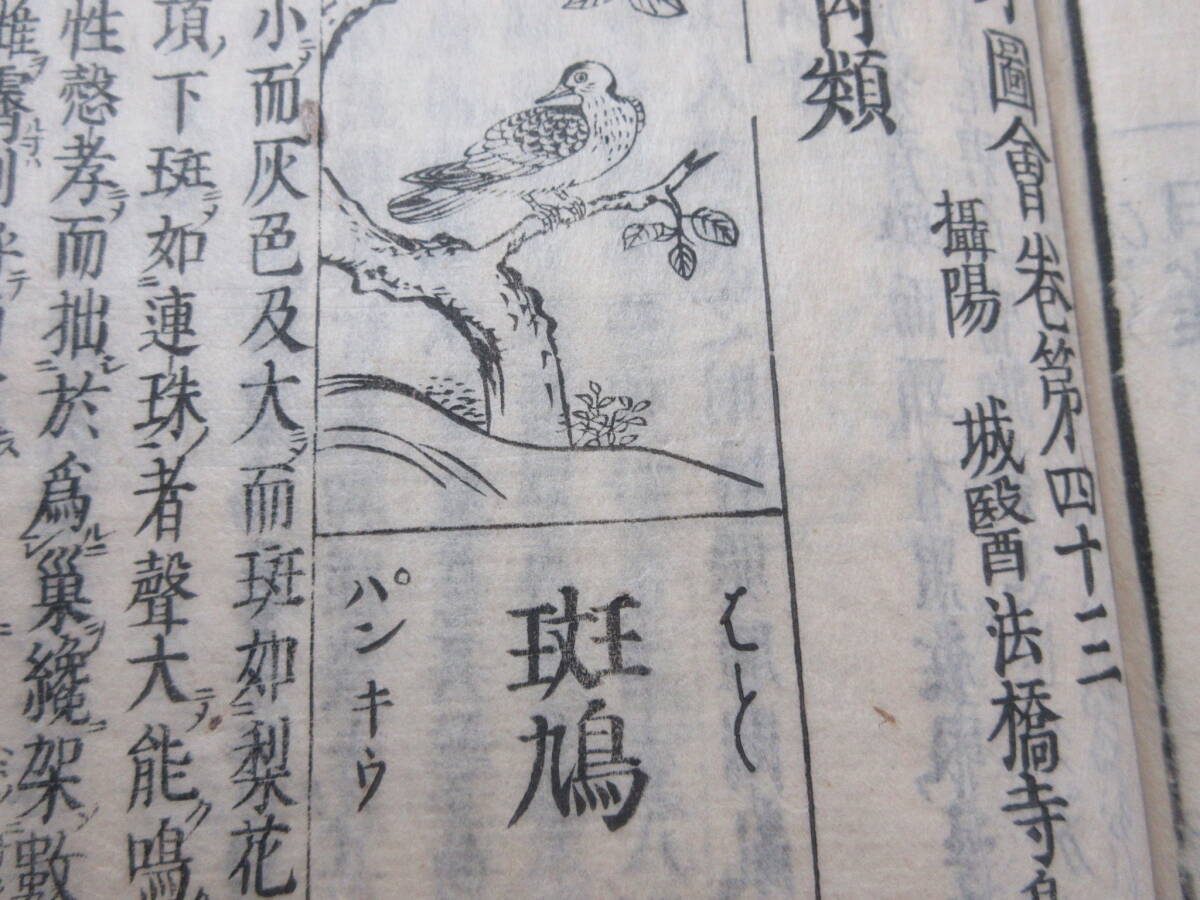 圖會卷第四十三
攝陽　城醫法橋寺
類
はと
斑鳩
パンキウ
小而灰色及大而斑如梨花
項下斑如連珠者聲大能鳴
性慤孝而拙於爲巢纔架數